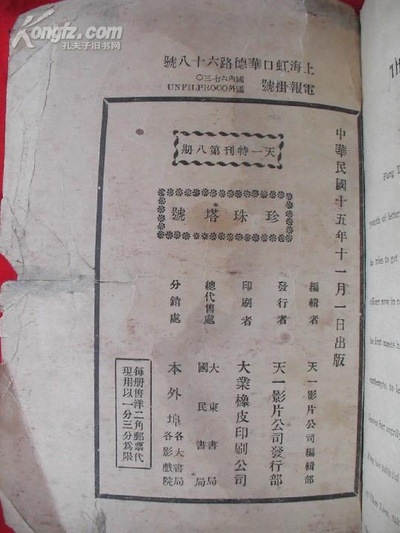 Kongfz.com
孔夫子旧书网
上海虹口華德路六十八號
電報掛號
國內六七三〇
國外UNFILPROCO
中華民國十五年十一月一日出版
天一特刊第八期
珍珠塔號
編輯者 天一影片公司編輯部
發行者 天一影片公司發行部
印刷者 大業橡皮印刷公司
總代售處 大東書局
國民書局
分銷處 本外埠各大書局
各影戲院
每册售洋二角郵票代
現用以一分三分為限